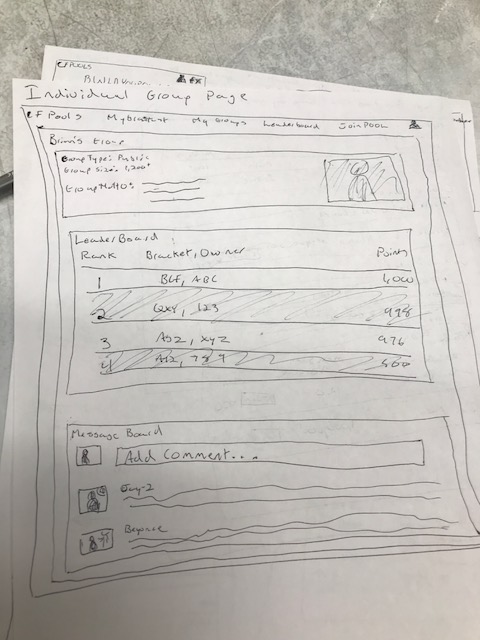 CF POOLS
Individual Group Page
CF Pools My Bracket My Groups Leaderboard Join Pool
Group Type: Public
Group Size: 1,200
Group Motto:
LeaderBoard
Rank Bracket, Owner Points
1 BLF, ABC 1,000
2 QXY, 123 998
3 ABZ, XYZ 976
4 500
Message Board
Add Comment...
Jay-Z
Beyonce